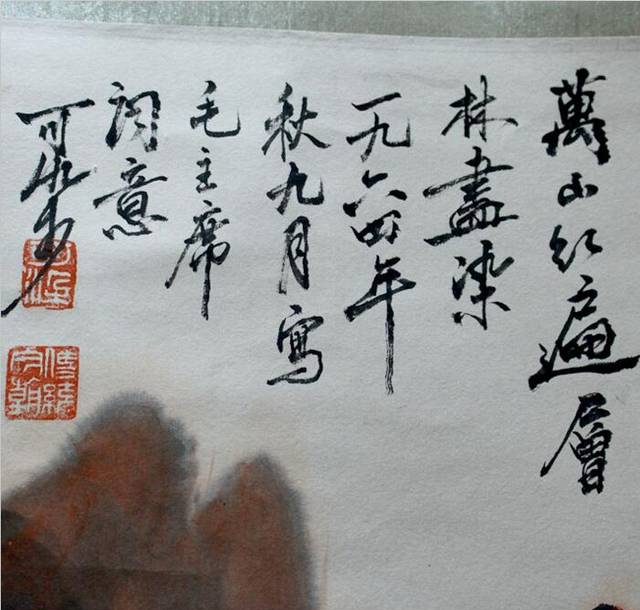 萬山紅遍層
林盡染
一九六四年
秋九月寫
毛主席
詞意
可染